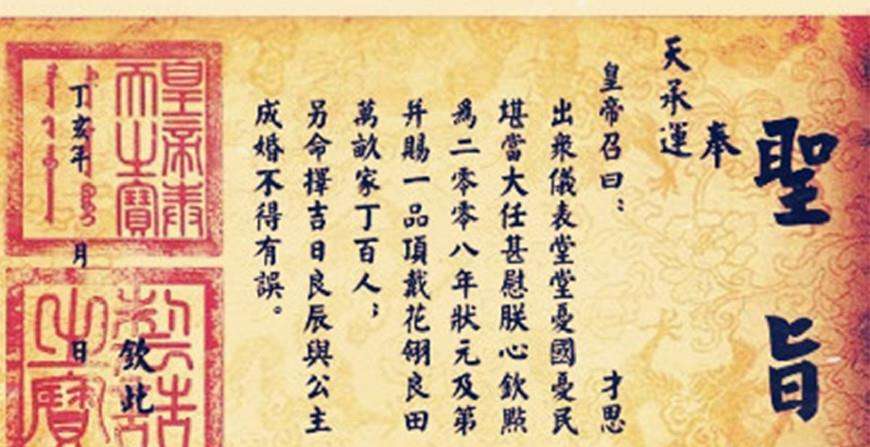 聖旨
奉
天承運
皇帝召曰：　才思
出衆儀表堂堂憂國憂民
堪當大任甚慰朕心欽點
爲二零零八年狀元及第
并賜一品頂戴花翎良田
萬畝家丁百人；
另命擇吉日良辰與公主
成婚不得有誤。
欽此
丁亥年　月　日
皇帝奉
天之寶
制誥
之寶